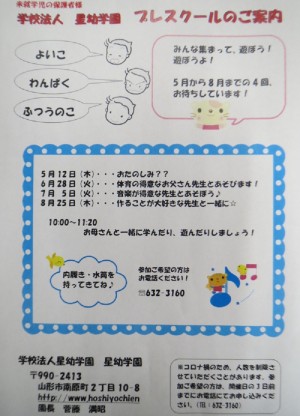 未就学児の保護者様
学校法人 星幼学園 プレスクールのご案内
よいこ
わんぱく
ふつうのこ
みんな集まって、遊ぼう!
遊ぼうよ!
5月から8月までの4回、
お待ちしています!
5月12日(木)・・・おたのしみ??
6月28日(火)・・・体育の得意なお父さん先生とあそびます!
7月 5日(火)・・・音楽が得意な先生とあそぼう♪
8月25日(木)・・・作ることが大好きな先生と一緒に☆
10:00~11:20
お母さんと一緒に学んだり、遊んだりしましょう!
内履き・水筒を
持ってきてね♪
参加ご希望の方は
お電話ください!
☎632-3160
学校法人星幼学園 星幼学園
〒990-2413
山形市南原町2丁目10-8
http://www.hoshiyochien
園長 菅藤 満昭
※コロナ禍のため、人数を制限さ
せていただくことがあります。参
加ご希望の方は、開催日の1日前
までにお電話にてお申し込みくだ
さい。(TEL:632-3160)